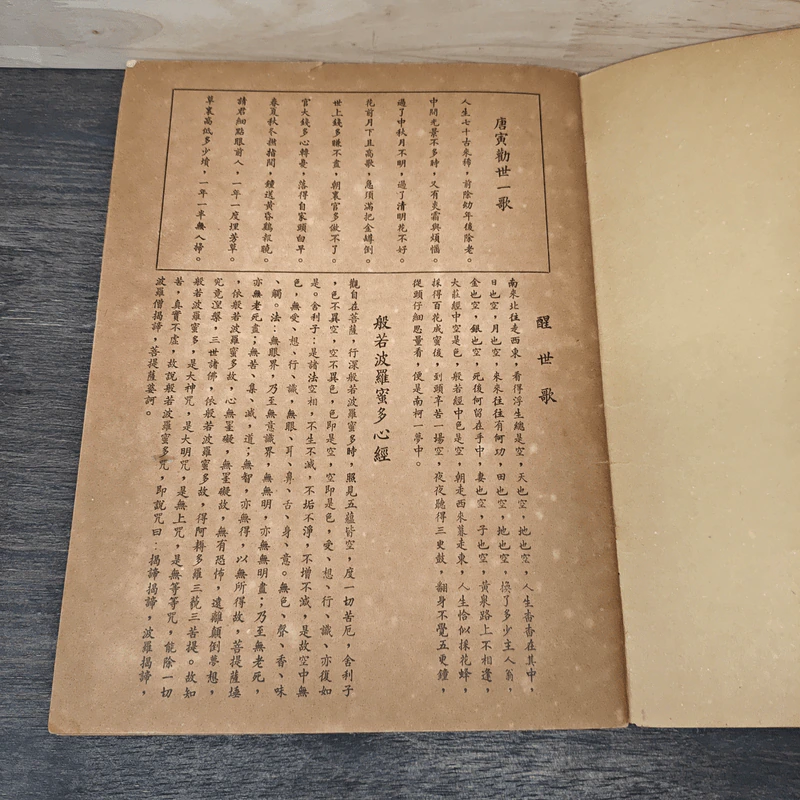 唐寅勸世一歌
人生七十古來稀，前除幼年後除老。
中間光景不多時，又有炎霜與煩惱。
過了中秋月不明，過了清明花不好。
花前月下且高歌，急須滿把金罇倒。
世上錢多賺不盡，朝裏官多做不了。
官大錢多心轉憂，落得自家頭白早。
春夏秋冬撚指間，鐘送黃昏鷄報曉。
請君細點眼前人，一年一度埋芳草。
草裏高低多少墳，一年一半無人掃。
醒世歌
南來北往走西東，看得浮生總是空，天也空，地也空，人生杳杳在其中，
日也空，月也空，來來往往有何功，田也空，地也空，換了多少主人翁，
金也空，銀也空，死後何留在手中，妻也空，子也空，黃泉路上不相逢，
大莊經中空是色，般若經中色是空，朝走西來暮走東，人生恰似採花蜂，
採得百花成蜜後，到頭辛苦一場空，夜夜聽得三更鼓，翻身不覺五更鐘，
從頭仔細思量看，便是南柯一夢中。
般若波羅蜜多心經
觀自在菩薩，行深般若波羅蜜多時，照見五蘊皆空，度一切苦厄，舍利子
，色不異空，空不異色，色即是空，空即是色，受、想、行、識、亦復如
是。舍利子：是諸法空相，不生不滅，不垢不淨，不增不減，是故空中無
色，無受、想、行、識，無眼、耳、鼻、舌、身、意。無色、聲、香、味
、觸。法：無眼界，乃至無意識界，無無明，亦無無明盡；乃至無老死，
亦無老死盡；無苦、集、滅，道；無智，亦無得，以無所得故，菩提薩埵
，依般若波羅蜜多故，心無罣礙，無罣礙故，無有恐怖，遠離顛倒夢想，
究竟涅槃，三世諸佛，依般若波羅蜜多故，得阿耨多羅三藐三菩提。故知
般若波羅蜜多，是大神咒，是大明咒，是無上咒，是無等等咒，能除一切
苦，真實不虛，故說般若波羅蜜多咒，即說咒曰：揭諦揭諦，波羅揭諦，
波羅僧揭諦，菩提薩婆訶。